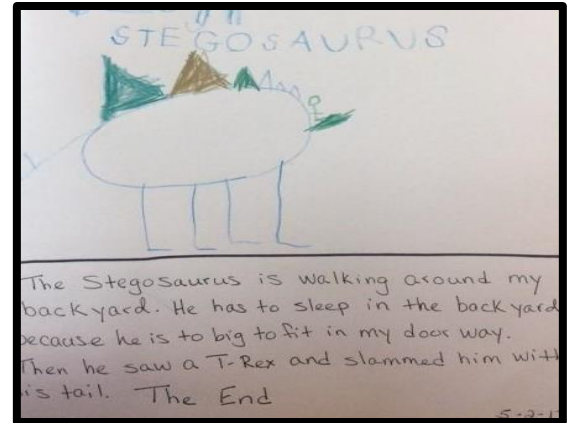 STEGOSAURUS
The Stegosaurus is walking around my
backyard. He has to sleep in the back yard
because he is to big to fit in my door way.
Then he saw a T-Rex and slammed him with
his tail. The End